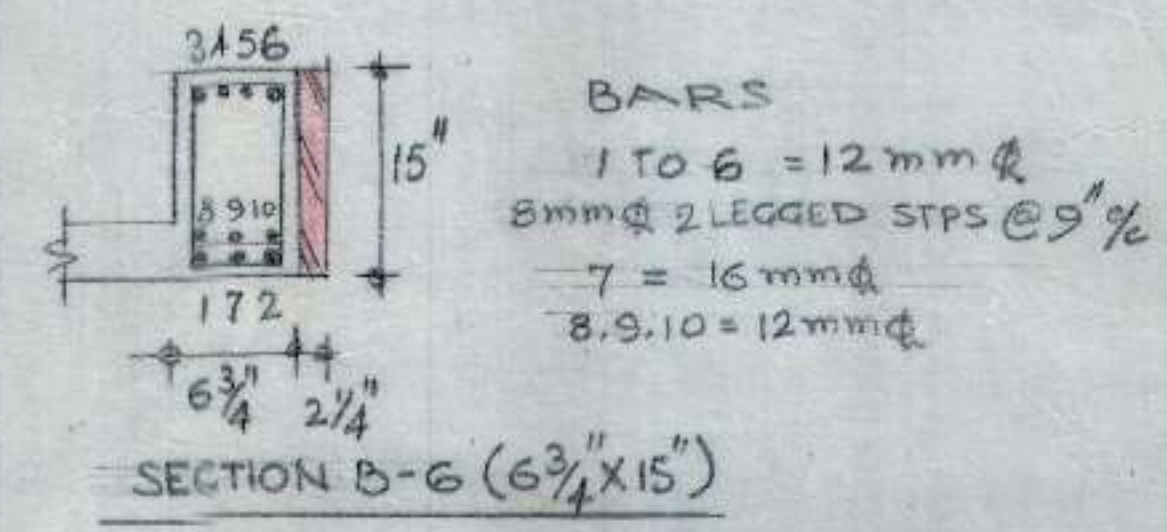 3 4 5 6
15"
8 9 10
1 7 2
6 3/4" 2 1/4"
BARS
1 TO 6 = 12 mm ⌀
8mm ⌀ 2 LEGGED STPS @ 9" c/c
7 = 16 mm ⌀
8.9.10 = 12 mm ⌀
SECTION B-6 (6 3/4" X 15")